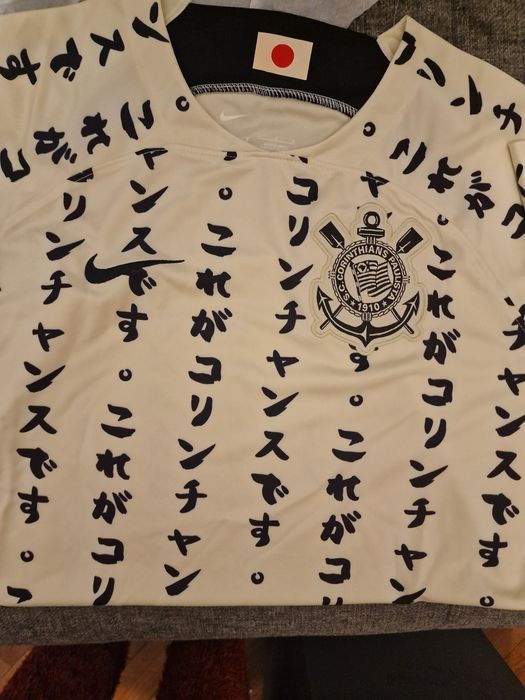 チャンスです。
これが
これがコリンチャン
S.C. CORINTHIANS PAULISTA
1910
。これがコリ
コリンチャンスです。
。これがコリンチャン
ャンスです。これがコリ
リンチャンスです。
ンスです。これ
スです
これがコ